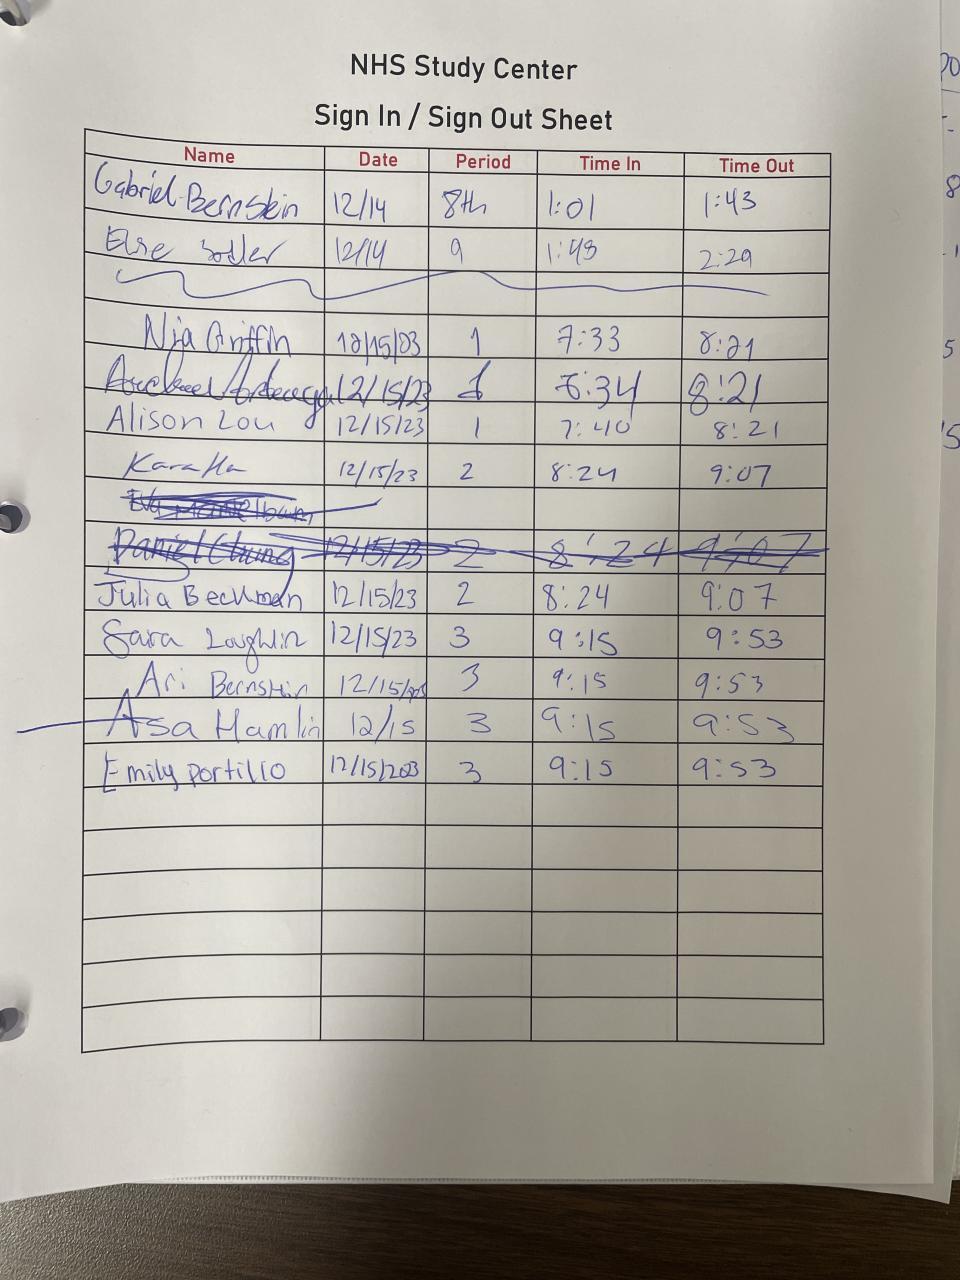 NHS Study Center
Sign In / Sign Out Sheet
Name Date Period Time In Time Out
Gabriel Bernstein 12/14 8th 1:01 1:43
Else 12/14 9 1:48 2:29
Nia Griffin 12/15/23 1 7:33 8:21
12/15/23 1 7:34 8:21
Alison Lou 12/15/23 1 7:40 8:21
Kara Ha 12/15/23 2 8:24 9:07
Daniel Chung 12/15/23 2 8:24 9:07
Julia Beckman 12/15/23 2 8:24 9:07
Sara Loughlin 12/15/23 3 9:15 9:53
Ari Bernstein 12/15/23 3 9:15 9:53
Asa Hamlin 12/15 3 9:15 9:53
Emily portillo 12/15/2023 3 9:15 9:53